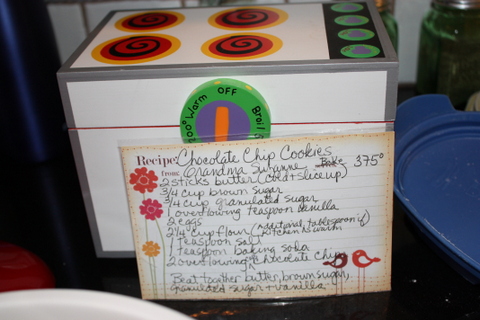 200° Warm OFF Broil
Recipe: Chocolate Chip Cookies
from: Grandma Suzanne Bake 375°
2 sticks butter (cold + slice up)
3/4 cup brown sugar
3/4 cup granulated sugar
1 overflowing teaspoon vanilla
2 eggs
2 1/4 cup flour (additional tablespoon if kitchen is warm)
1 teaspoon salt
1 teaspoon baking soda
2 overflowing c chocolate chips
Beat together butter, brown sugar,
granulated sugar + vanilla